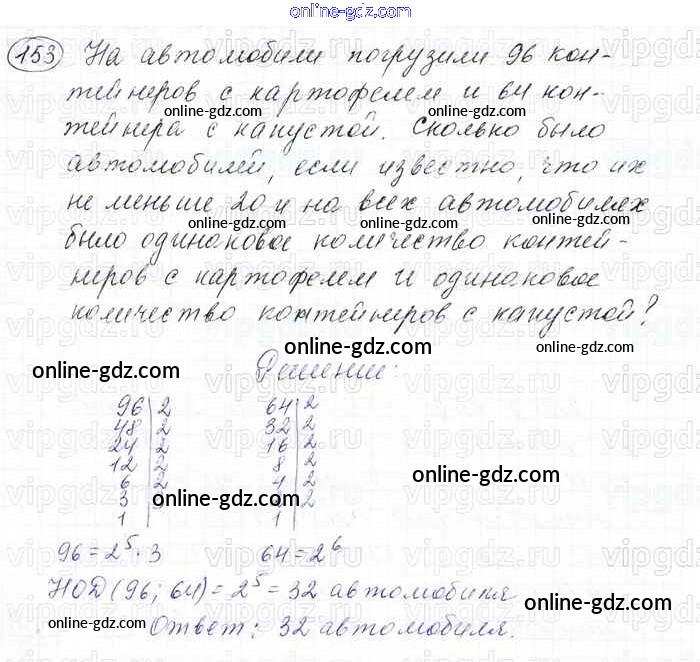 online-gdz.com
153 На автомобили погрузили 96 кон-
тейнеров с картофелем и 64 кон-
online-gdz.com online-gdz.com
тейнера с капустой. Сколько было
автомобилей, если известно, что их
online-gdz.com online-gdz.com
не меньше 20 и на всех автомобилях
online-gdz.com online-gdz.com
было одинаковое количество контей-
неров с картофелем и одинаковое
количество контейнеров с капустой?
online-gdz.com online-gdz.com
online-gdz.com Решение:
96 2 64 2
48 2 32 2
24 2 16 2
12 2 8 2
online-gdz.com
6 2 4 2
3 2
online-gdz.com
1 1
96 = 2⁵ · 3 64 = 2⁶
НОД (96; 64) = 2⁵ = 32 автомобиля
online-gdz.com
online-gdz.com Ответ: 32 автомобиля.